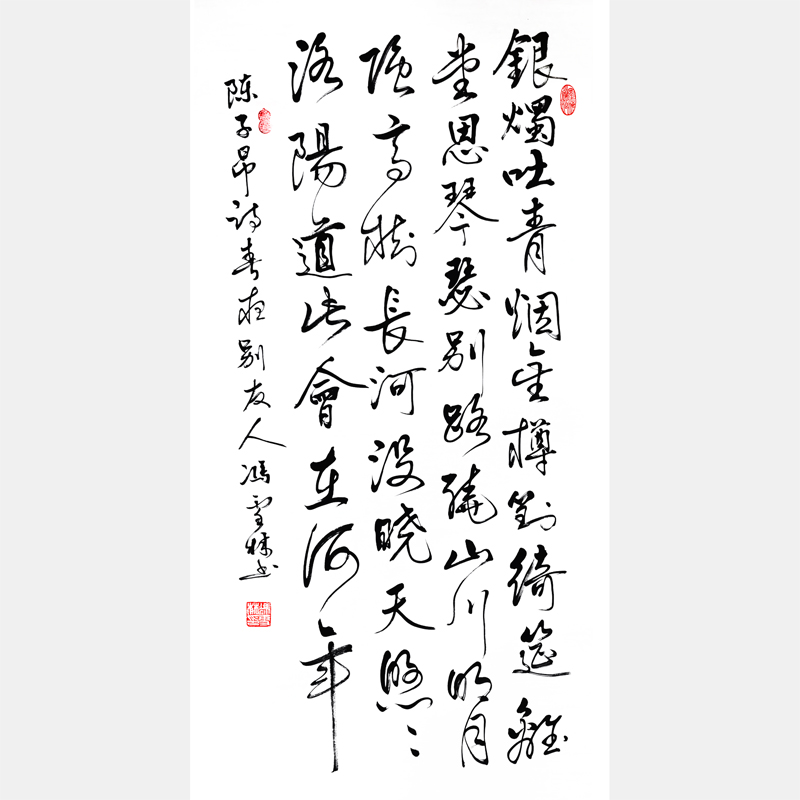 銀燭吐青烟金樽對綺筵離
堂思琴瑟别路繞山川明月
隐高樹長河没晓天悠〻
洛陽道此會在何年
陈子昂诗春夜别友人冯雪林书